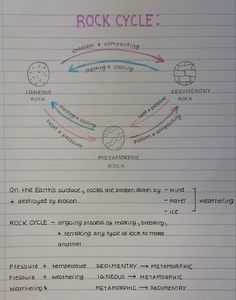 ROCK CYCLE:
erosion + compacting
melting + cooling
IGNEOUS
ROCK
SEDIMENTRY
ROCK
melting + cooling
heat + pressure
heat + pressure
erosion + compacting
METAMORPHIC
ROCK
On the Earth's surface, rocks are broken down by - wind
+ destroyed by erosion. - water weathering
- ice
ROCK CYCLE - ongoing process of making, breaking,
+ remaking any type of rock to make
another
Pressure + temperature SEDIMENTRY → METAMORPHIC
Pressure + weathering IGNEOUS → METAMORPHIC
Weathering & METAMORPHIC → SEDIMENTRY